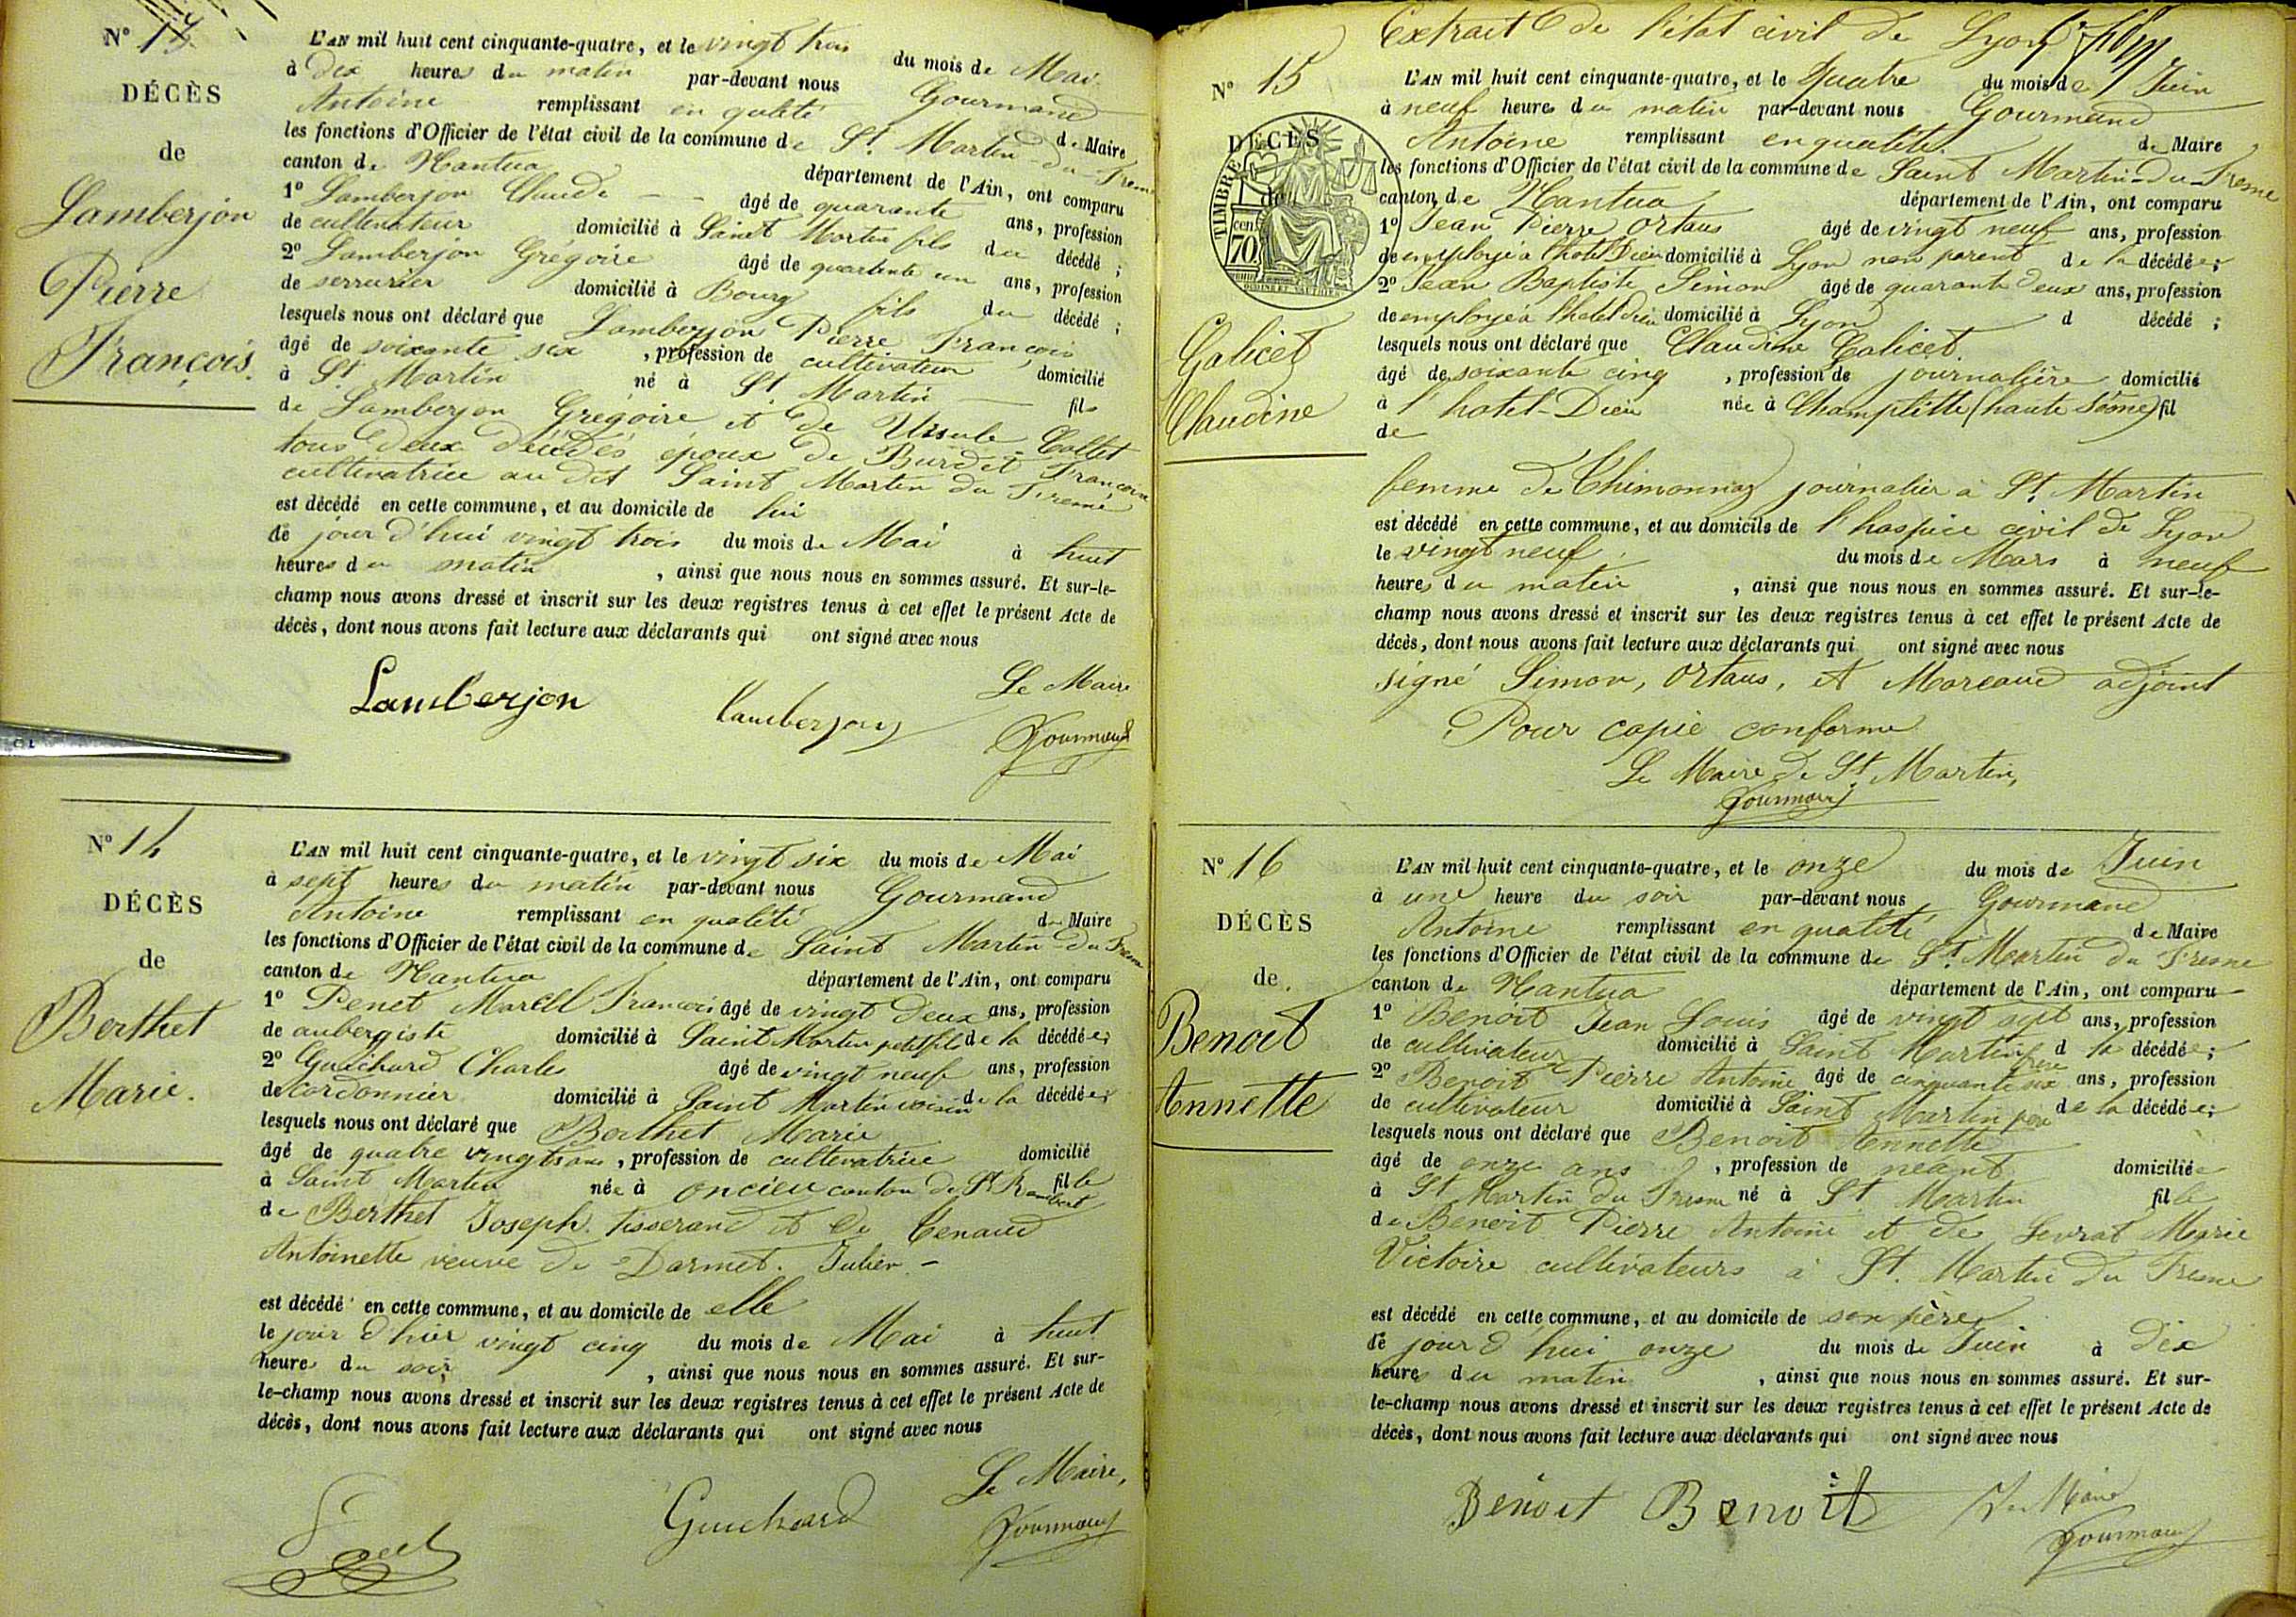 N° 13
DÉCÈS
de
Lamberjon
Pierre
François.
L'AN mil huit cent cinquante-quatre, et le vingt trois du mois de Mai
à dix heures du matin par-devant nous Gourmand
Antoine remplissant en qalité de Maire
les fonctions d'Officier de l'état civil de la commune de St. Martin-du-Fresne
canton de Nantua département de l'Ain, ont comparu
1° Lamberjon Claude - - âgé de quarante ans, profession
de cultivateur domicilié à Saint Martin fils du décédé ;
2° Lamberjon Grégoire âgé de quarente un ans, profession
de serrurier domicilié à Bourg fils du décédé ;
lesquels nous ont déclaré que Lamberjon Pierre François
âgé de soixante six , profession de cultivateur domicilié
à St. Martin né à St. Martin — fils
de Lamberjon Grégoire et de Ursule Collet
tous deux décédés époux de Burdet Françoise
cultivatrice au dit Saint Martin du Fresne
est décédé en cette commune, et au domicile de lui
le jour d'hui vingt trois du mois de Mai à huit
heures du matin , ainsi que nous nous en sommes assuré. Et sur-le-
champ nous avons dressé et inscrit sur les deux registres tenus à cet effet le présent Acte de
décès, dont nous avons fait lecture aux déclarants qui ont signé avec nous
Le Maire
Lamberjon Lamberjon Gourmand
N° 14
DÉCÈS
de
Berthet
Marie.
L'AN mil huit cent cinquante-quatre, et le vingt six du mois de Mai
à sept heures du matin par-devant nous Gourmand
Antoine remplissant en qualité de Maire
les fonctions d'Officier de l'état civil de la commune de Saint Martin-du-Fresne
canton de Nantua département de l'Ain, ont comparu
1° Penet Marcel François âgé de vingt deux ans, profession
de aubergiste domicilié à Saint Martin petit fils de la décédée ;
2° Guichard Charles âgé de vingt neuf ans, profession
de cordonnier domicilié à Saint Martin voisin de la décédée ;
lesquels nous ont déclaré que Berthet Marie
âgé de quatre vingts ans , profession de cultivatrice domicilié
à Saint Martin née à oncieu canton de St. Rambert fille
de Berthet Joseph. tisserand et de Cenaud
Antoinette veuve de Darmet. Julien -
est décédé en cette commune, et au domicile de elle
le jour d'hier vingt cinq du mois de Mai à huit
heures du soir , ainsi que nous nous en sommes assuré. Et sur-
le-champ nous avons dressé et inscrit sur les deux registres tenus à cet effet le présent Acte de
décès, dont nous avons fait lecture aux déclarants qui ont signé avec nous
Le Maire,
Guichard Gourmand
Extrait de l'état civil de Lyon
N° 15
DÉCÈS
de
TIMBRE
70 cen.
Galicet
Claudine
L'AN mil huit cent cinquante-quatre, et le Quatre du mois de Juin
à neuf heures du matin par-devant nous Gourmand
Antoine remplissant en qualité de Maire
les fonctions d'Officier de l'état civil de la commune de Saint Martin-du-Fresne
canton de Nantua département de l'Ain, ont comparu
1° Jean Pierre Ortaus âgé de vingt neuf ans, profession
de employé à l'hotel Dieu domicilié à Lyon non parent de la décédée ;
2° Jean Baptiste Simon âgé de quarante deux ans, profession
de employé à l'hotel dieu domicilié à Lyon d décédé ;
lesquels nous ont déclaré que Claudine Galicet.
âgé de soixante cinq , profession de journalière domicilié
à l'hotel-Dieu née à Champlitte (haute Saone) fil
de
femme de Chimonnaz journalier à St. Martin
est décédé en cette commune, et au domicile de l'hospice civil de Lyon
le vingt neuf du mois de Mars à neuf
heures du matin , ainsi que nous nous en sommes assuré. Et sur-le-
champ nous avons dressé et inscrit sur les deux registres tenus à cet effet le présent Acte de
décès, dont nous avons fait lecture aux déclarants qui ont signé avec nous
signé Simon, Ortaus, et Moreaud adjoint
Pour copie conforme
Le Maire de St. Martin,
Gourmand
N° 16
DÉCÈS
de
Benoit
Annette
L'AN mil huit cent cinquante-quatre, et le onze du mois de Juin
à une heure du soir par-devant nous Gourmand
Antoine remplissant en qualité de Maire
les fonctions d'Officier de l'état civil de la commune de St. Martin du Fresne
canton de Nantua département de l'Ain, ont comparu
1° Benoit Jean Louis âgé de vingt sept ans, profession
de cultivateur domicilié à Saint Martin frère d la décédée ;
2° Benoit Pierre Antoine âgé de cinquante six ans, profession
de cultivateur domicilié à Saint Martin père de la décédée ;
lesquels nous ont déclaré que Benoit Annette
âgé de onze ans , profession de néant domiciliée
à St Martin du Fresne né à St Martin fille
de Benoit Pierre Antoine et de Levrat Marie
Victoire cultivateurs à St. Martin du Fresne
est décédé en cette commune, et au domicile de son père
le jour d'hui onze du mois de Juin à dix
heures du matin , ainsi que nous nous en sommes assuré. Et sur-
le-champ nous avons dressé et inscrit sur les deux registres tenus à cet effet le présent Acte de
décès, dont nous avons fait lecture aux déclarants qui ont signé avec nous
Benoit Benoit Le Maire
Gourmand